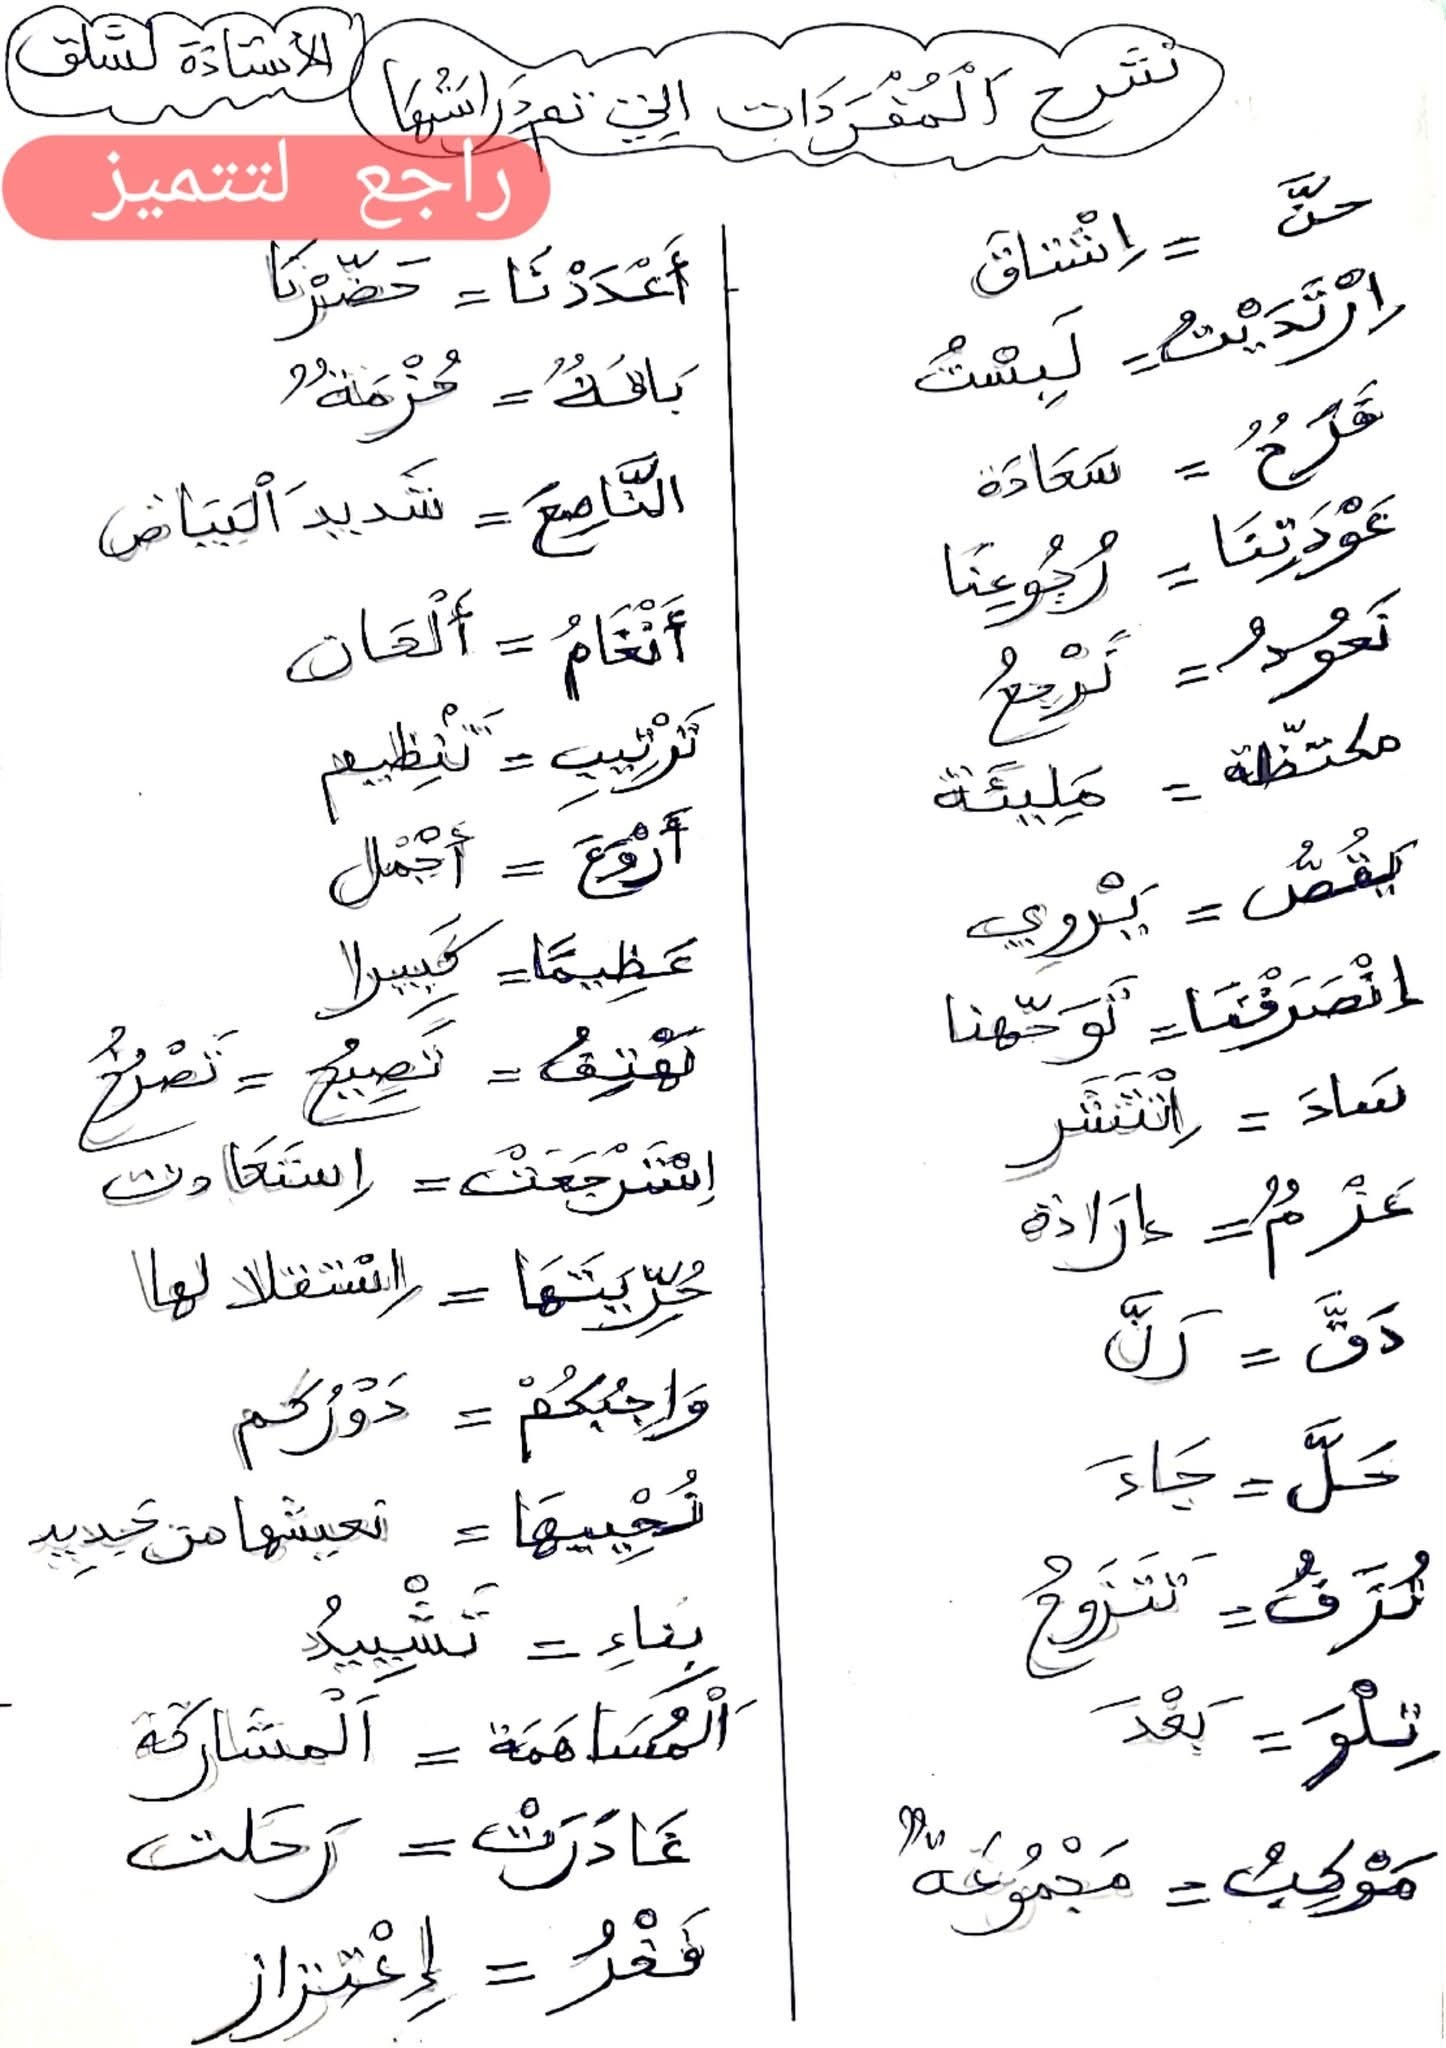 الأستاذة لشلق
شرح اَلْمُفْرَدَات التي تم دِرَاسَتُهَا
راجع لتتميز
حنَّ = اِشْتاق
اِرْتَدَيْتُ = لَبِسْتُ
فَرَحٌ = سَعَادَة
عَوْدَتِنَا = رُجُوعِنَا
نَعُودُ = نَرْجِعُ
مكتظّة = مَلِيئَة
يَقُصُّ = يَرْوِي
اِنْصَرَفْنَا = تَوَجّهنا
سَادَ = اِنْتَشَر
عَزْمٌ = إرَادَة
دَقَّ = رَنَّ
حَلَّ = جَاءَ
تُزَفُّ = تَتَزَوجُ
تِلْوَ = بَعْدَ
مَوْكِبٌ = مَجْمُوعَةٌ
أَعْدَدْنَا = حَضّرْنَا
بَاقَةٌ = حُزْمَةٌ
النَّاصِعَ = شَدِيدَ اَلْبَيَاض
أَنْغَامُ = أَلْحَان
تَرْتِيبِ = تَنْظِيم
أَرْوَعَ = أَجْمَل
عَظِيمًا = كَبِيرا
تَهْتِفُ = تَصِيحُ = تَصْرُخُ
اِسْتَرْجَعَتْ = اِستَعَادت
حُرِّيَتَهَا = اِسْتقلالها
وَاجِبُكُمْ = دَوْرُكم
نُحْيِيهَا = نعيشها من جَدِيد
بِناءِ = تَشْيِيدُ
اَلْمُسَاهَمَة = اَلْمشَاركَة
غَادَرَتْ = رَحَلت
فَخْرُ = إِعْتِزاز